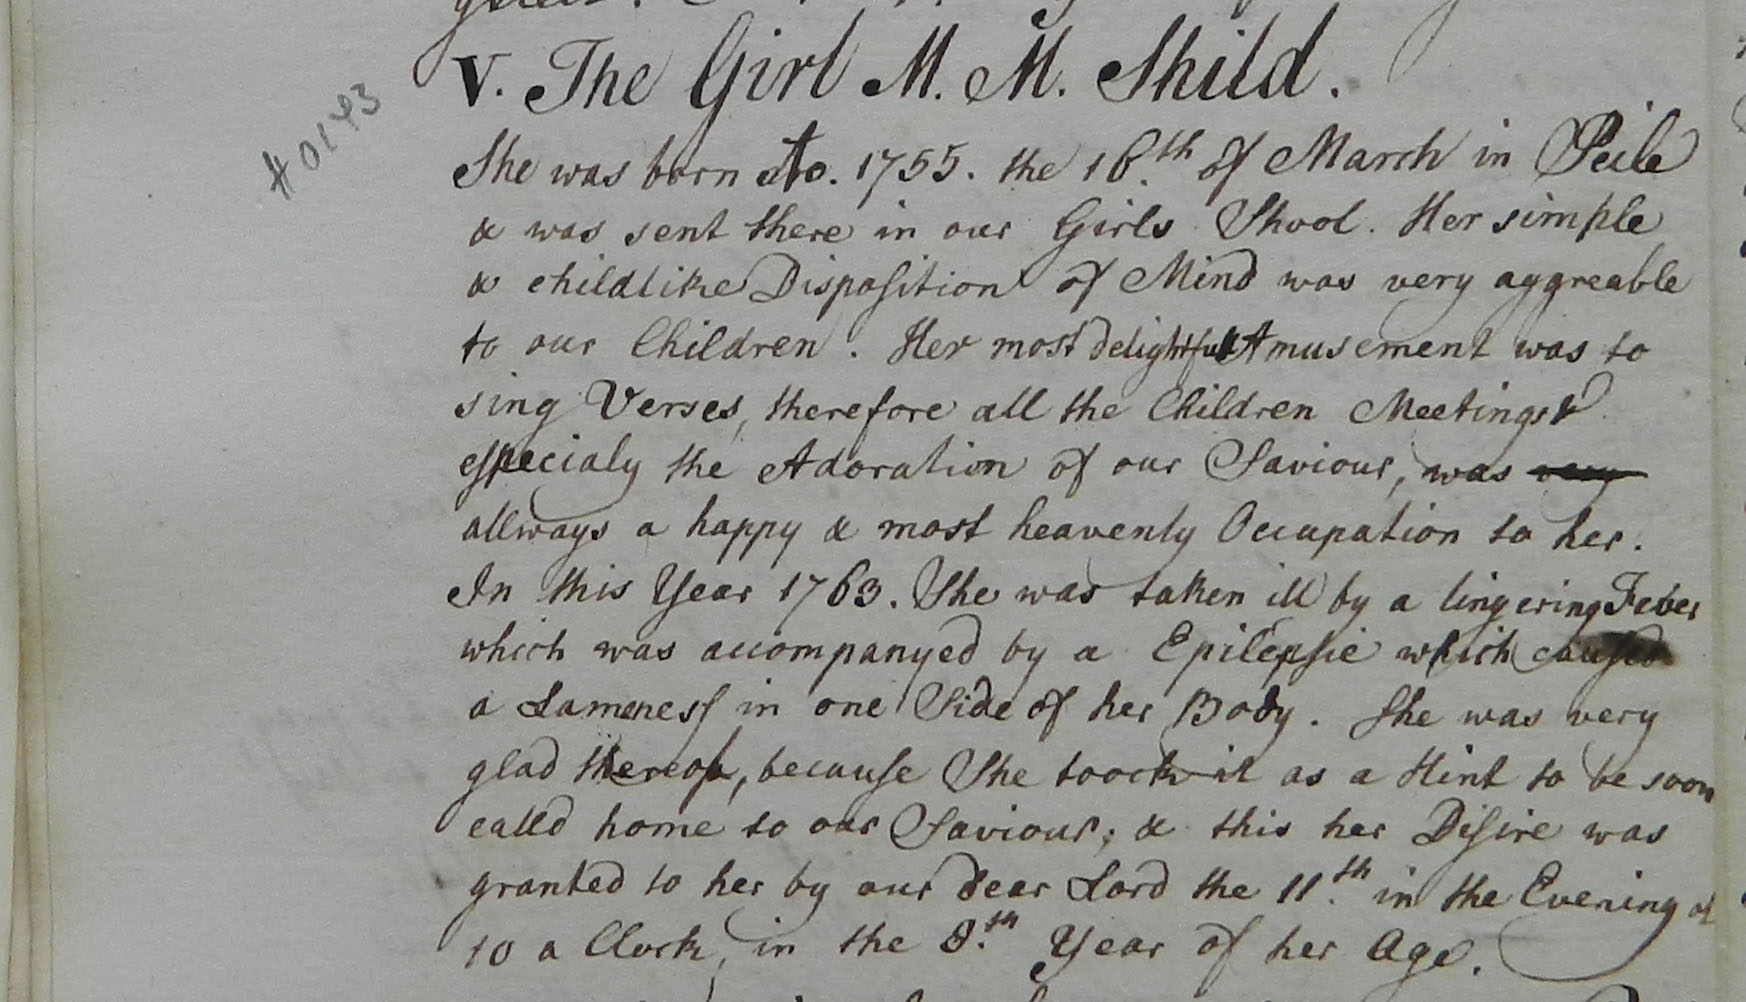 V. The Girl M. M. Shild.
#0143
She was born Ao. 1755. the 16.th of March in
& was sent there in our Girls Shool. Her simple
& childlike Disposition of Mind was very aggreable
to our Children. Her most delightfull Amusement was to
sing Verses, therefore all the Children Meetings &
especialy the Adoration of our Saviour, was very
allways a happy & most heavenly Occupation to her.
In this Year 1763. She was taken ill by a lingering Fever
which was accompanyed by a Epilepsie which caused
a Lameness in one Side of her Body. She was very
glad thereof, because She toock it as a Hint to be soon
calld home to our Saviour; & this her Disire was
granted to her by our dear Lord the 11.th in the Evening at
10 a Clock, in the 8.th Year of her Age.